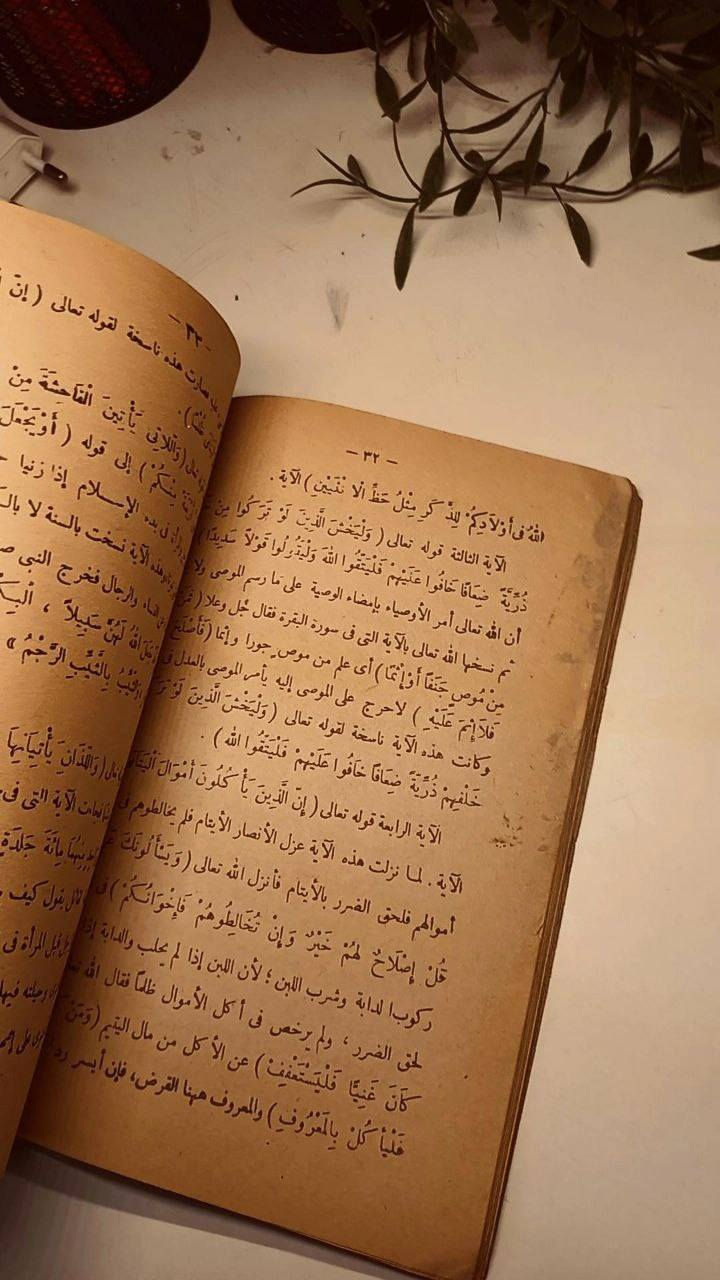 — ٣٢ —
اللهُ فى أَوْلَادِكُمْ لِلذَّكَرِ مِثْلُ حَظِّ الْأُنْثَيَيْنِ) الآية .
الآية الثالثة قوله تعالى (وَلْيَخْشَ الَّذِينَ لَوْ تَرَكُوا مِنْ
ذُرِّيَّةً ضِعَافًا خَافُوا عَلَيْهِمْ فَلْيَتَّقُوا اللهَ وَلْيَقُولُوا قَوْلاً سَدِيدًا)
أن الله تعالى أمر الأوصياء بإمضاء الوصية على ما رسم الموصى ولا
ثم نسخها الله تعالى بالآية التى فى سورة البقرة فقال جل وعلا (
مِنْ مُوصٍ جَنَفًا أَوْ إِثْمًا) أى علم من موص جورا وإثما (فَأَصْلَحَ
فَلَا إِثْمَ عَلَيْهِ) لاحرج على الموصى إليه يأمر الموصى بالعدل فى
وكانت هذه الآية ناسخة لقوله تعالى (وَلْيَخْشَ الَّذِينَ لَوْ
خَلْفِهِمْ ذُرِّيَّةً ضِعَافًا خَافُوا عَلَيْهِمْ فَلْيَتَّقُوا الله) .
الآية الرابعة قوله تعالى (إِنَّ الَّذِينَ يَأْكُلُونَ أَمْوَالَ
الآية . لما نزلت هذه الآية عزل الأنصار الأيتام فلم يخالطوهم فى
أموالهم فلحق الضرر بالأيتام فأنزل الله تعالى (وَيَسْأَلُونَكَ
قُلْ إِصْلَاحٌ لَهُمْ خَيْرٌ وَإِنْ تُخَالِطُوهُمْ فَإِخْوَانُكُمْ) فى
ركوب الدابة وشرب اللبن ؛ لأن اللبن إذا لم يحلب والدابة إذا
لحق الضرر ، ولم يرخص فى أكل الأموال ظلمًا فقال الله
كَانَ غَنِيًّا فَلْيَسْتَعْفِفْ) عن الأكل من مال اليتيم (وَمَنْ
فَلْيَأْكُلْ بِالْمَعْرُوفِ) والمعروف ههنا القرض، فإن أيسر رد
— ٣٣ —
صارت هذه ناسخة لقوله تعالى (إِنَّ
(وَاللَّاتِى يَأْتِينَ الْفَاحِشَةَ مِنْ
إلى قوله (أَوْ يَجْعَلَ
فى بدء الإسلام إذا زنيا
هذه الآية نسخت بالسنة لا
والرجال فخرج النبى
اللهُ لَهُنَّ سَبِيلاً ،
بِالثَّيِّبِ الرَّجْمُ »
(وَاللَّذَانِ يَأْتِيَانِهَا
الآية التى فى
مِائَةَ جَلْدَةٍ
يقول كيف
المرأة فى